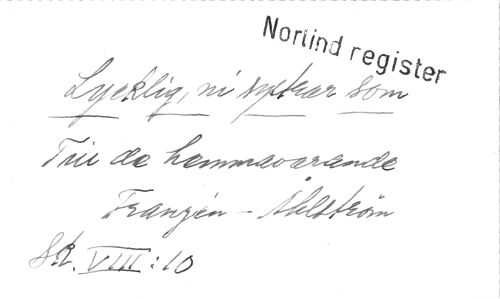 Norlind register
Lycklig, ni systrar som
Till de hemmavarande
Franzén - Åhlström
Sk. VIII:10